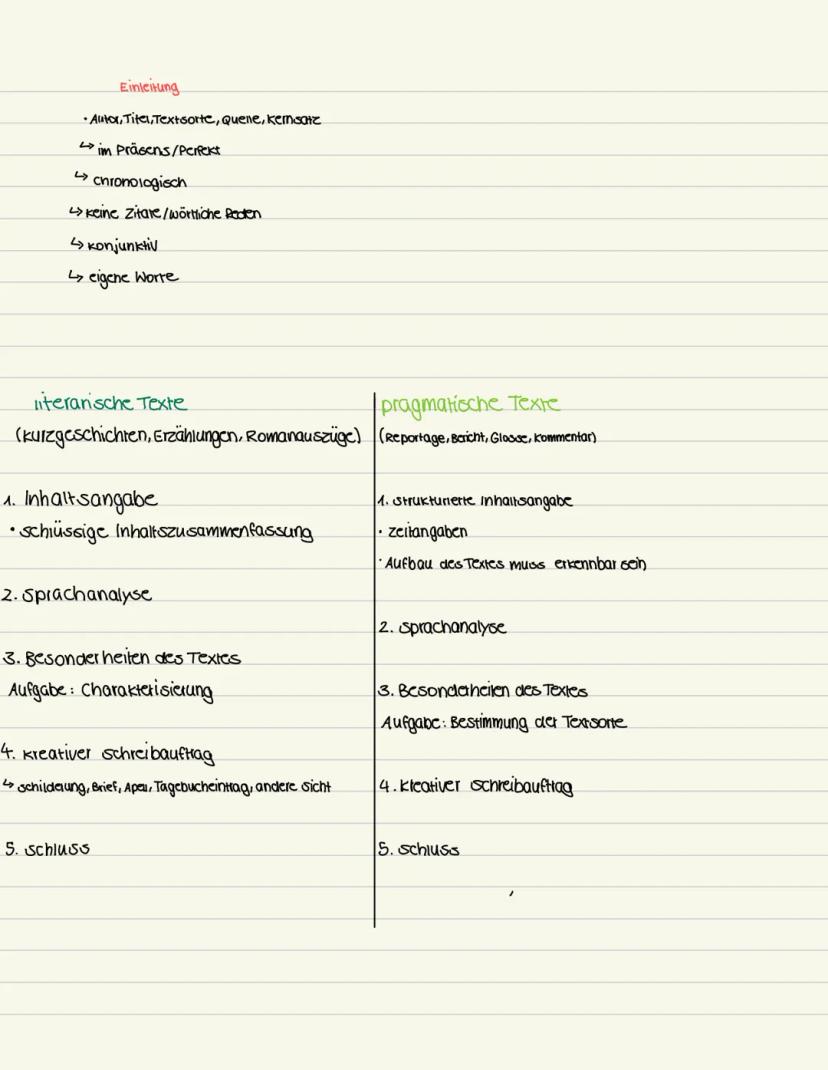 Einleitung
· Autor, Titel, Textsorte, Quelle, Kernsatz
↳ im Präsens/Perfekt
↳ chronologisch
↳ keine Zitate/wörtliche Reden
↳ konjunktiv
↳ eigene Worte
literarische Texte
(Kurzgeschichten, Erzählungen, Romanauszüge)
1. Inhaltsangabe
· schlüssige Inhaltszusammenfassung
2. Sprachanalyse
3. Besonderheiten des Textes
Aufgabe: Charakterisierung
4. kreativer Schreibauftrag
↳ Schilderung, Brief, Apell, Tagebucheintrag, andere Sicht
5. Schluss
pragmatische Texte
(Reportage, Bericht, Glosse, Kommentar)
1. strukturierte Inhaltsangabe
· Zeitangaben
· Aufbau des Textes muss erkennbar sein
2. Sprachanalyse
3. Besonderheiten des Textes
Aufgabe: Bestimmung der Textsorte
4. kreativer Schreibauftrag
5. Schluss